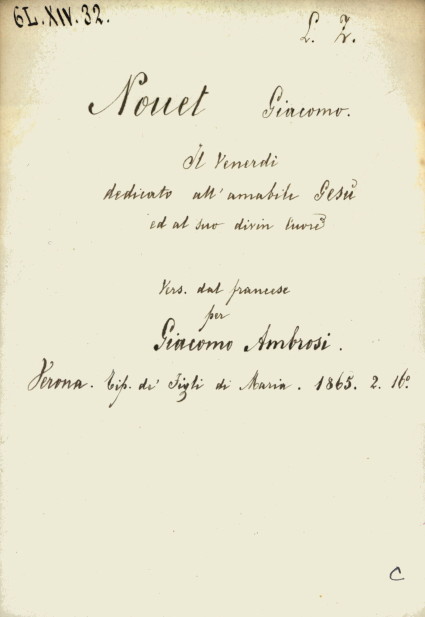 6L.XIV.32.
L. Z.
Nouet Giacomo.
Il Venerdi
dedicato all'amabile Gesù
ed al suo divin Cuore
Vers. dal francese
per
Giacomo Ambrosi.
Verona. Tip. de' Figli di Maria. 1865. 2. 16°
C